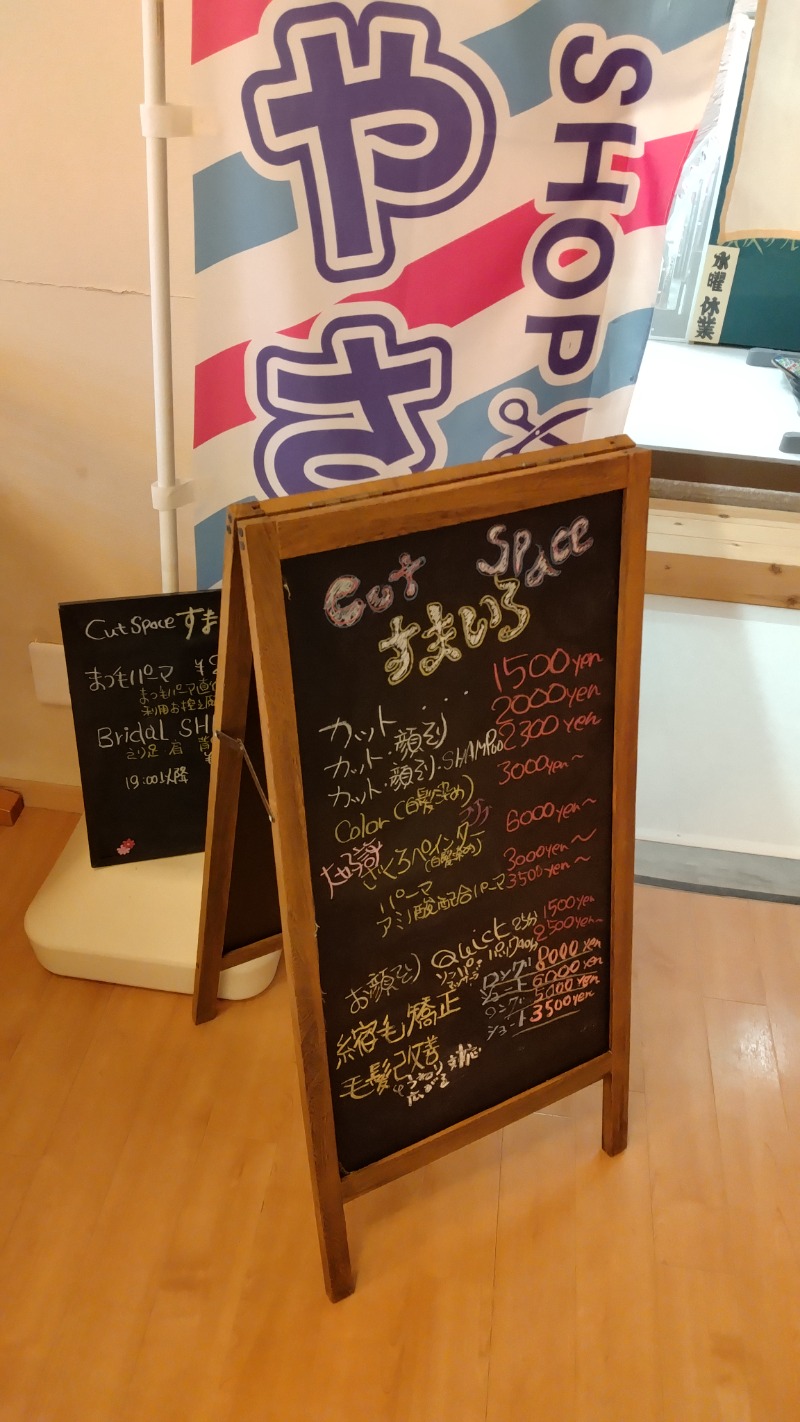 や
さ
SHOP
水曜休業
Cut Space
すまいろ
カット ... 1500yen
カット・顔そり 2000yen
カット・顔そり・SHAMPOO 2300yen
Color (白髪染め) 3000yen～
大好評
さくろペインター 6000yen～
(白髪染め)
パーマ 3000yen～
アミノ酸配合パーマ 3500yen～
お顔そり Quick 1500yen
2500yen～
縮毛矯正 ロング 8000yen
ショート 6000yen
毛髪改善 ロング 5000yen
ショート 3500yen
うねり
広がる
対応
Cut Space すま
まつ毛パーマ ¥
まつ毛パーマ直
利用お控え
Bridal SH
えり足・肩 背
19:00以降